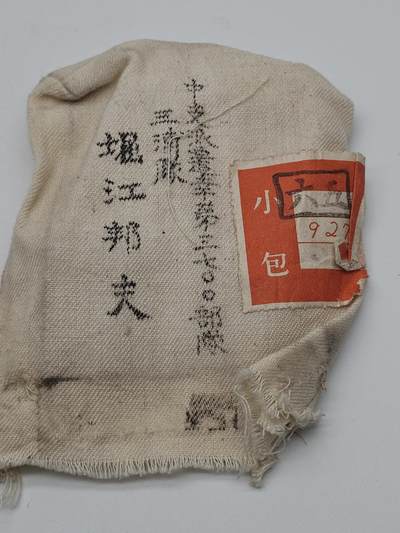 中支派遣峯第三七〇〇部隊
三浦隊
堀江邦夫
小包
927